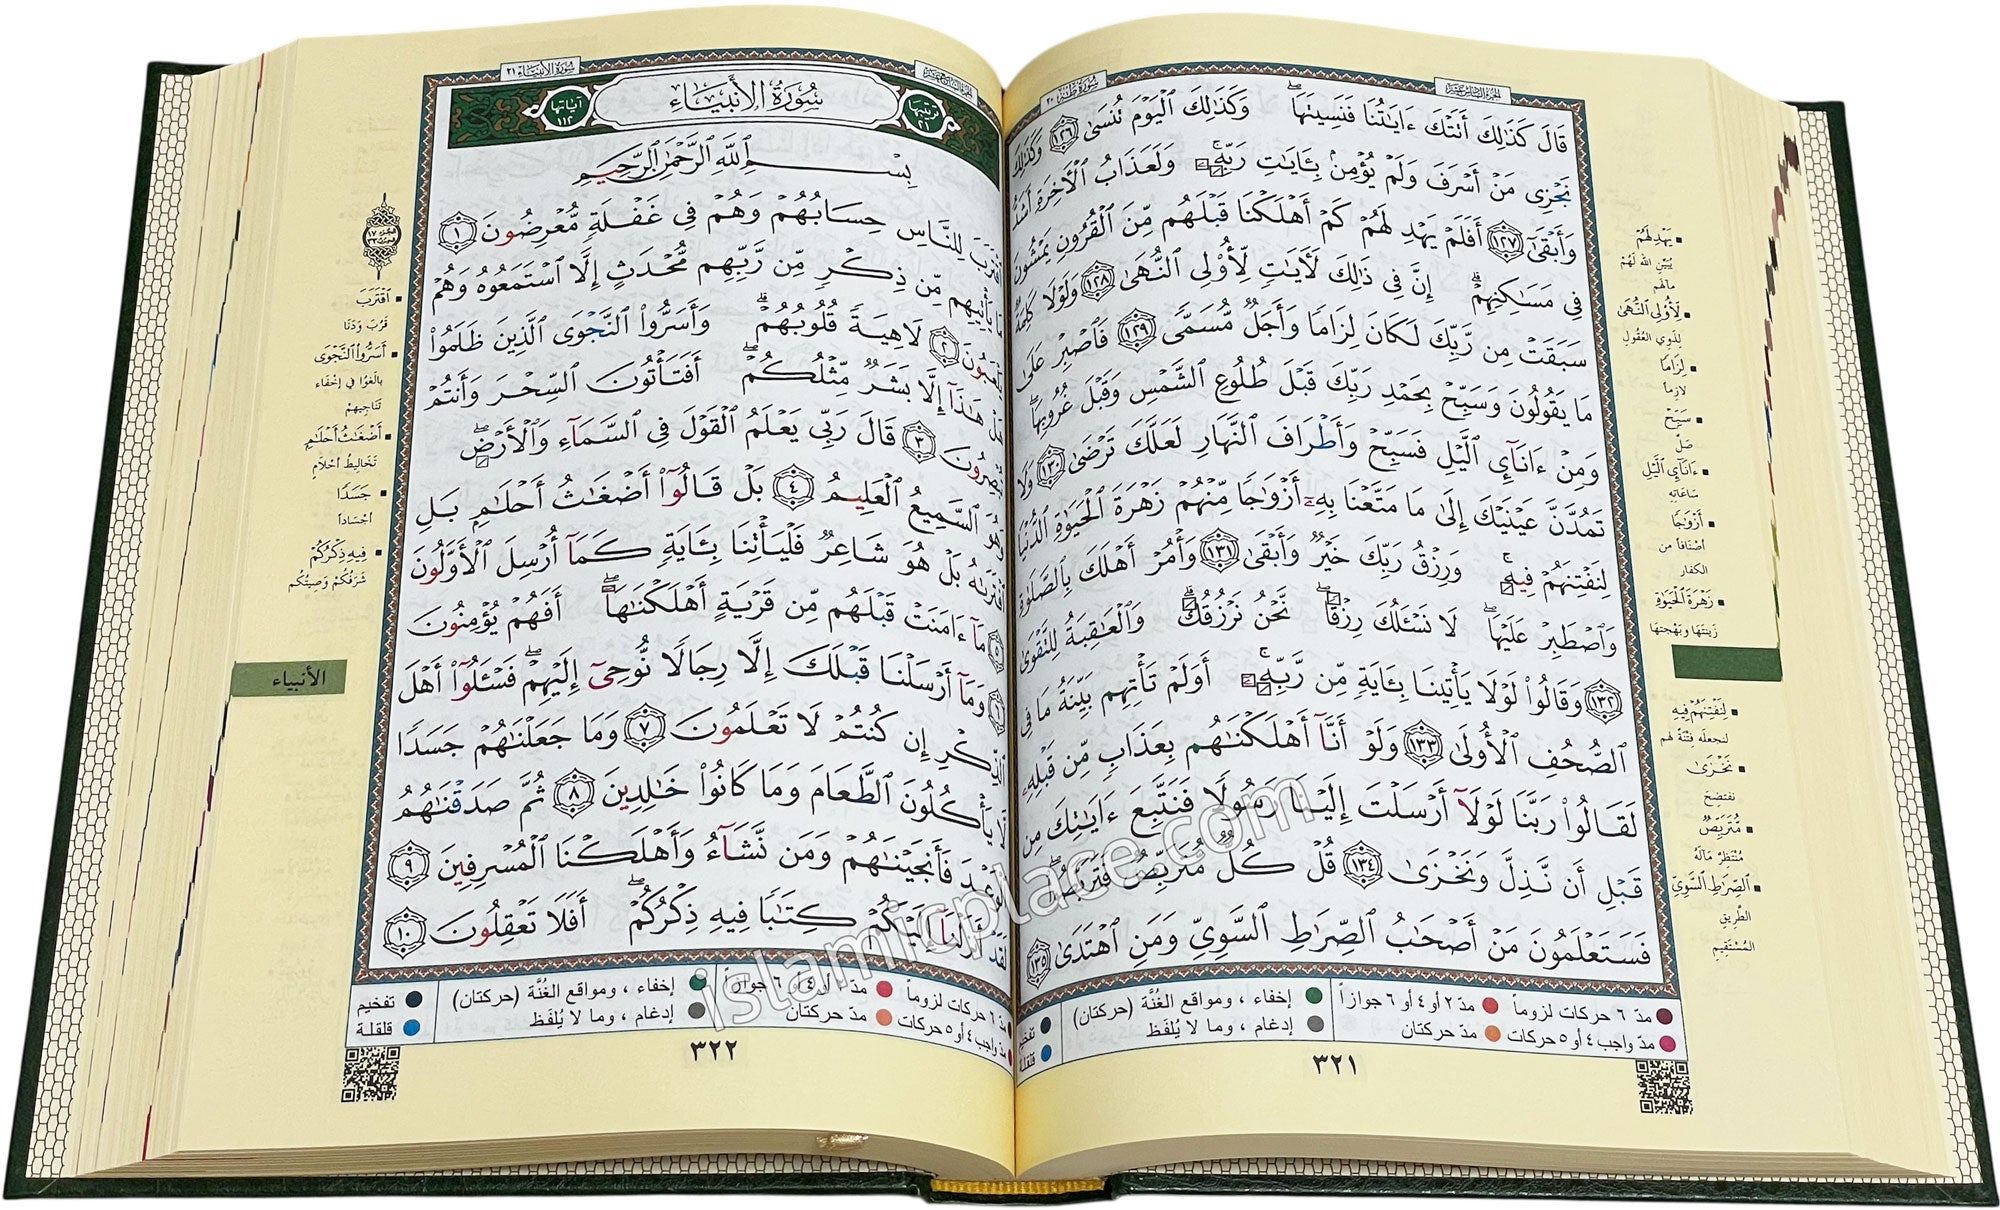 سُورَةُ طه ٢٠
قَالَ كَذَٰلِكَ أَتَتْكَ ءَايَٰتُنَا فَنَسِيتَهَا ۖ وَكَذَٰلِكَ ٱلْيَوْمَ تُنسَىٰ ١٢٦ وَكَذَٰلِكَ
نَجْزِى مَنْ أَسْرَفَ وَلَمْ يُؤْمِنۢ بِـَٔايَٰتِ رَبِّهِۦ ۚ وَلَعَذَابُ ٱلْءَاخِرَةِ أَشَدُّ
وَأَبْقَىٰٓ ١٢٧ أَفَلَمْ يَهْدِ لَهُمْ كَمْ أَهْلَكْنَا قَبْلَهُم مِّنَ ٱلْقُرُونِ يَمْشُونَ
فِى مَسَٰكِنِهِمْ ۗ إِنَّ فِى ذَٰلِكَ لَءَايَٰتٍ لِّأُو۟لِى ٱلنُّهَىٰ ١٢٨ وَلَوْلَا كَلِمَةٌ
سَبَقَتْ مِن رَّبِّكَ لَكَانَ لِزَامًا وَأَجَلٌ مُّسَمًّى ١٢٩ فَٱصْبِرْ عَلَىٰ
مَا يَقُولُونَ وَسَبِّحْ بِحَمْدِ رَبِّكَ قَبْلَ طُلُوعِ ٱلشَّمْسِ وَقَبْلَ غُرُوبِهَا ۖ
وَمِنْ ءَانَآئِ ٱلَّيْلِ فَسَبِّحْ وَأَطْرَافَ ٱلنَّهَارِ لَعَلَّكَ تَرْضَىٰ ١٣٠ وَلَا
تَمُدَّنَّ عَيْنَيْكَ إِلَىٰ مَا مَتَّعْنَا بِهِۦٓ أَزْوَٰجًا مِّنْهُمْ زَهْرَةَ ٱلْحَيَوٰةِ ٱلدُّنْيَا
لِنَفْتِنَهُمْ فِيهِ ۚ وَرِزْقُ رَبِّكَ خَيْرٌ وَأَبْقَىٰ ١٣١ وَأْمُرْ أَهْلَكَ بِٱلصَّلَوٰةِ
وَٱصْطَبِرْ عَلَيْهَا ۖ لَا نَسْـَٔلُكَ رِزْقًا ۖ نَّحْنُ نَرْزُقُكَ ۗ وَٱلْعَٰقِبَةُ لِلتَّقْوَىٰ
١٣٢ وَقَالُوا۟ لَوْلَا يَأْتِينَا بِـَٔايَةٍ مِّن رَّبِّهِۦٓ ۚ أَوَلَمْ تَأْتِهِم بَيِّنَةُ مَا فِى
ٱلصُّحُفِ ٱلْأُولَىٰ ١٣٣ وَلَوْ أَنَّآ أَهْلَكْنَٰهُم بِعَذَابٍ مِّن قَبْلِهِۦ
لَقَالُوا۟ رَبَّنَا لَوْلَآ أَرْسَلْتَ إِلَيْنَا رَسُولًا فَنَتَّبِعَ ءَايَٰتِكَ مِن
قَبْلِ أَن نَّذِلَّ وَنَخْزَىٰ ١٣٤ قُلْ كُلٌّ مُّتَرَبِّصٌ فَتَرَبَّصُوا۟ ۖ
فَسَتَعْلَمُونَ مَنْ أَصْحَٰبُ ٱلصِّرَٰطِ ٱلسَّوِىِّ وَمَنِ ٱهْتَدَىٰ ١٣٥
يَهْدِ لَهُمْ
يُبَيِّنِ الله لَهُمْ
مآلهم
لِأُو۟لِى ٱلنُّهَىٰ
لِذَوِي العُقُولِ
لِزَامًا
لازما
سَبِّحْ
صَلِّ
ءَانَآئِ ٱلَّيْلِ
سَاعَاتِهِ
أَزْوَٰجًا
أصْنَافاً من
الكفار
زَهْرَةَ ٱلْحَيَوٰةِ
زِينَتَهَا وبَهْجَتَهَا
لِنَفْتِنَهُمْ فِيهِ
لنجعله فِتْنَةً لهم
نَخْزَىٰ
نفتضِحَ
مُّتَرَبِّصٌ
مُنْتَظِرٌ مآلَهُ
ٱلصِّرَٰطِ ٱلسَّوِىِّ
الطَّرِيقِ
المُسْتَقِيمِ
مدّ ٦ حركات لزوماً مدّ ٢ أو ٤ أو ٦ جوازاً إخفاء ، ومواقع الغُنَّة (حركتان) تفخيم
مدّ واجب ٤ أو ٥ حركات مدّ حركتان إدغام ، وما لا يُلفَظ قلقلة
٣٢١
سُورَةُ الأَنبِيَاءِ ٢١
ترتيبها ٢١
سُورَةُ الأَنبِيَاءِ
آياتها ١١٢
بِسْمِ ٱللَّهِ ٱلرَّحْمَٰنِ ٱلرَّحِيمِ
ٱقْتَرَبَ لِلنَّاسِ حِسَابُهُمْ وَهُمْ فِى غَفْلَةٍ مُّعْرِضُونَ ١
مَا يَأْتِيهِم مِّن ذِكْرٍ مِّن رَّبِّهِم مُّحْدَثٍ إِلَّا ٱسْتَمَعُوهُ وَهُمْ
يَلْعَبُونَ ٢ لَاهِيَةً قُلُوبُهُمْ ۗ وَأَسَرُّوا۟ ٱلنَّجْوَى ٱلَّذِينَ ظَلَمُوا۟
هَلْ هَٰذَآ إِلَّا بَشَرٌ مِّثْلُكُمْ ۖ أَفَتَأْتُونَ ٱلسِّحْرَ وَأَنتُمْ
تُبْصِرُونَ ٣ قَالَ رَبِّى يَعْلَمُ ٱلْقَوْلَ فِى ٱلسَّمَآءِ وَٱلْأَرْضِ ۖ
وَهُوَ ٱلسَّمِيعُ ٱلْعَلِيمُ ٤ بَلْ قَالُوٓا۟ أَضْغَٰثُ أَحْلَٰمٍۭ بَلِ
ٱفْتَرَىٰهُ بَلْ هُوَ شَاعِرٌ فَلْيَأْتِنَا بِـَٔايَةٍ كَمَآ أُرْسِلَ ٱلْأَوَّلُونَ
٥ مَآ ءَامَنَتْ قَبْلَهُم مِّن قَرْيَةٍ أَهْلَكْنَٰهَآ ۖ أَفَهُمْ يُؤْمِنُونَ
٦ وَمَآ أَرْسَلْنَا قَبْلَكَ إِلَّا رِجَالًا نُّوحِىٓ إِلَيْهِمْ ۖ فَسْـَٔلُوٓا۟ أَهْلَ
ٱلذِّكْرِ إِن كُنتُمْ لَا تَعْلَمُونَ ٧ وَمَا جَعَلْنَٰهُمْ جَسَدًا
لَّا يَأْكُلُونَ ٱلطَّعَامَ وَمَا كَانُوا۟ خَٰلِدِينَ ٨ ثُمَّ صَدَقْنَٰهُمُ
ٱلْوَعْدَ فَأَنجَيْنَٰهُمْ وَمَن نَّشَآءُ وَأَهْلَكْنَا ٱلْمُسْرِفِينَ ٩
لَقَدْ أَنزَلْنَآ إِلَيْكُمْ كِتَٰبًا فِيهِ ذِكْرُكُمْ ۖ أَفَلَا تَعْقِلُونَ ١٠
ٱقْتَرَبَ
قَرُبَ وَدَنَا
أَسَرُّوا۟ ٱلنَّجْوَى
بالَغوا في إخْفَاء
تَنَاجِيهِمْ
أَضْغَٰثُ أَحْلَٰمٍ
تَخَالِيطُ أحْلامٍ
جَسَدًا
أجْسَاداً
فِيهِ ذِكْرُكُمْ
شَرَفُكُمْ وَصِيتُكُم
الأنبياء
مدّ ٦ حركات لزوماً مدّ ٢ أو ٤ أو ٦ جوازاً إخفاء ، ومواقع الغُنَّة (حركتان) تفخيم
مدّ واجب ٤ أو ٥ حركات مدّ حركتان إدغام ، وما لا يُلفَظ قلقلة
٣٢٢
islamicplace.com